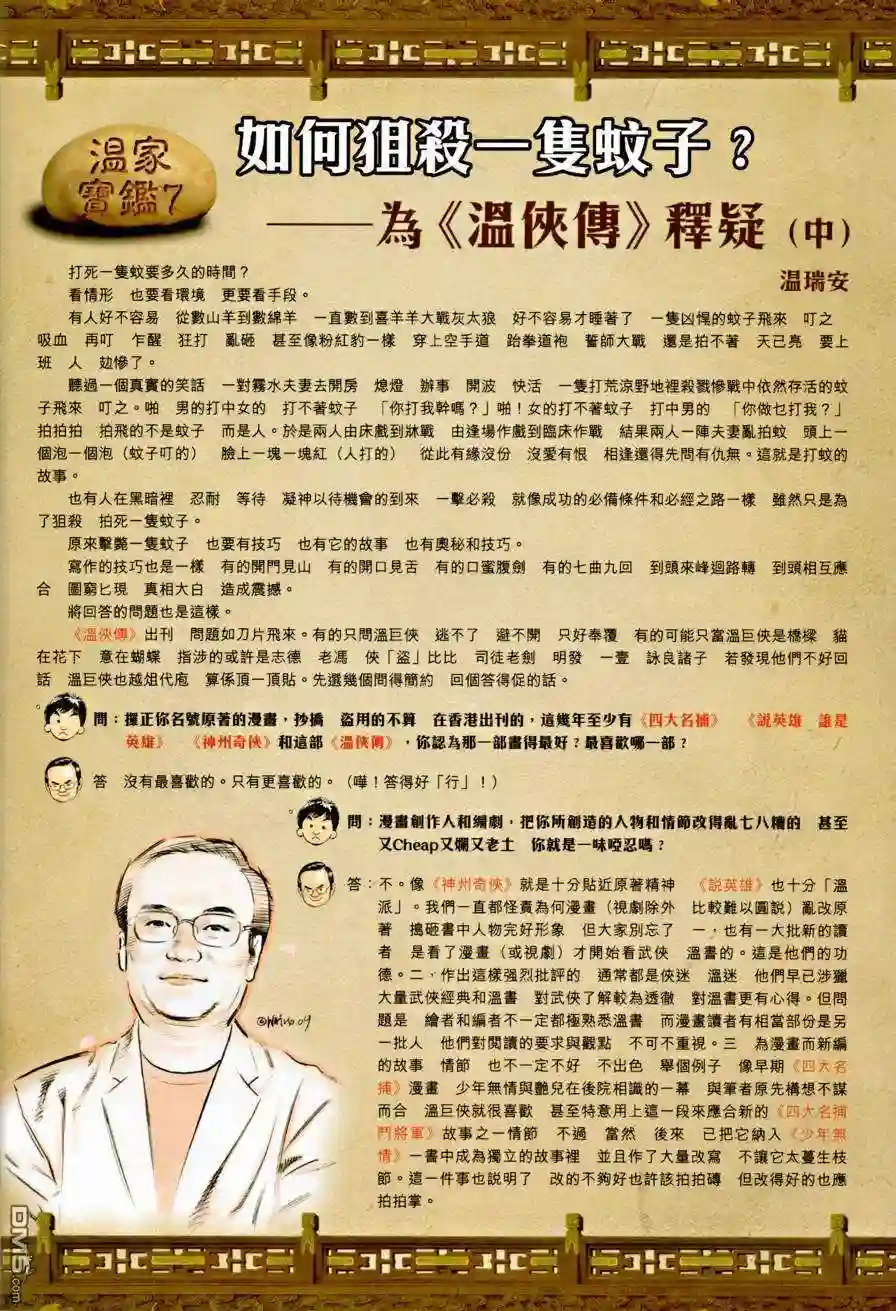 溫家
寶鑑7
如何狙殺一隻蚊子？
——為《溫俠傳》釋疑（中）
溫瑞安
打死一隻蚊要多久的時間？
看情形　也要看環境　更要看手段。
有人好不容易　從數山羊到數綿羊　一直數到喜羊羊大戰灰太狼　好不容易才睡著了　一隻凶悍的蚊子飛來　叮之
吸血　再叮　乍醒　狂打　亂砸　甚至像粉紅豹一樣　穿上空手道　跆拳道袍　誓師大戰　還是拍不著　天已亮　要上
班　人　攰慘了。
聽過一個真實的笑話　一對霧水夫妻去開房　熄燈　辦事　開波　快活　一隻打荒涼野地裡殺戮慘戰中依然存活的蚊
子飛來　叮之。啪　男的打中女的　打不著蚊子　「你打我幹嗎？」啪！女的打不著蚊子　打中男的　「你做乜打我？」
拍拍拍　拍飛的不是蚊子　而是人。於是兩人由床戲到牀戰　由逢場作戲到臨床作戰　結果兩人一陣夫妻亂拍蚊　頭上一
個泡一個泡（蚊子叮的）　臉上一塊一塊紅（人打的）　從此有緣沒份　沒愛有恨　相逢還得先問有仇無。這就是打蚊的
故事。
也有人在黑暗裡　忍耐　等待　凝神以待機會的到來　一擊必殺　就像成功的必備條件和必經之路一樣　雖然只是為
了狙殺　拍死一隻蚊子。
原來擊斃一隻蚊子　也要有技巧　也有它的故事　也有奧秘和技巧。
寫作的技巧也是一樣　有的開門見山　有的開口見舌　有的口蜜腹劍　有的七曲九回　到頭來峰迴路轉　到頭相互應
合　圖窮匕現　真相大白　造成震撼。
將回答的問題也是這樣。
《溫俠傳》出刊　問題如刀片飛來。有的只問溫巨俠　逃不了　避不開　只好奉覆　有的可能只當溫巨俠是橋樑　貓
在花下　意在蝴蝶　指涉的或許是志德　老馮　俠「盜」比比　司徒老劍　明發　一壹　詠良諸子　若發現他們不好回
話　溫巨俠也越俎代庖　算係頂一頂貼。先選幾個問得簡約　回個答得促的話。
問：攞正你名號原著的漫畫，抄橋　盜用的不算　在香港出刊的，這幾年至少有《四大名捕》　《說英雄　誰是
英雄》　《神州奇俠》和這部《溫俠傳》，你認為那一部畫得最好？最喜歡哪一部？
答　沒有最喜歡的。只有更喜歡的。（嘩！答得好「行」！）
問：漫畫創作人和編劇，把你所創造的人物和情節改得亂七八糟的　甚至
又Cheap又爛又老土　你就是一味啞忍嗎？
答：不。像《神州奇俠》就是十分貼近原著精神　《說英雄》也十分「溫
派」。我們一直都怪責為何漫畫（視劇除外　比較難以圓說）亂改原
著　搗砸書中人物完好形象　但大家別忘了　一，也有一大批新的讀
者　是看了漫畫（或視劇）才開始看武俠　溫書的。這是他們的功
德。二、作出這樣强烈批評的　通常都是俠迷　溫迷　他們早已涉獵
大量武俠經典和溫書　對武俠了解較為透徹　對溫書更有心得。但問
題是　繪者和編者不一定都極熟悉溫書　而漫畫讀者有相當部份是另
一批人　他們對閱讀的要求與觀點　不可不重視。三　為漫畫而新編
的故事　情節　也不一定不好　不出色　舉個例子　像早期《四大名
捕》漫畫　少年無情與艷兒在後院相識的一幕　與筆者原先構想不謀
而合　溫巨俠就很喜歡　甚至特意用上這一段來應合新的《四大名捕
鬥將軍》故事之一情節　不過　當然　後來　已把它納入《少年無
情》一書中成為獨立的故事裡　並且作了大量改寫　不讓它太蔓生枝
節。這一件事也說明了　改的不夠好也許該拍拍磚　但改得好的也應
拍拍掌。